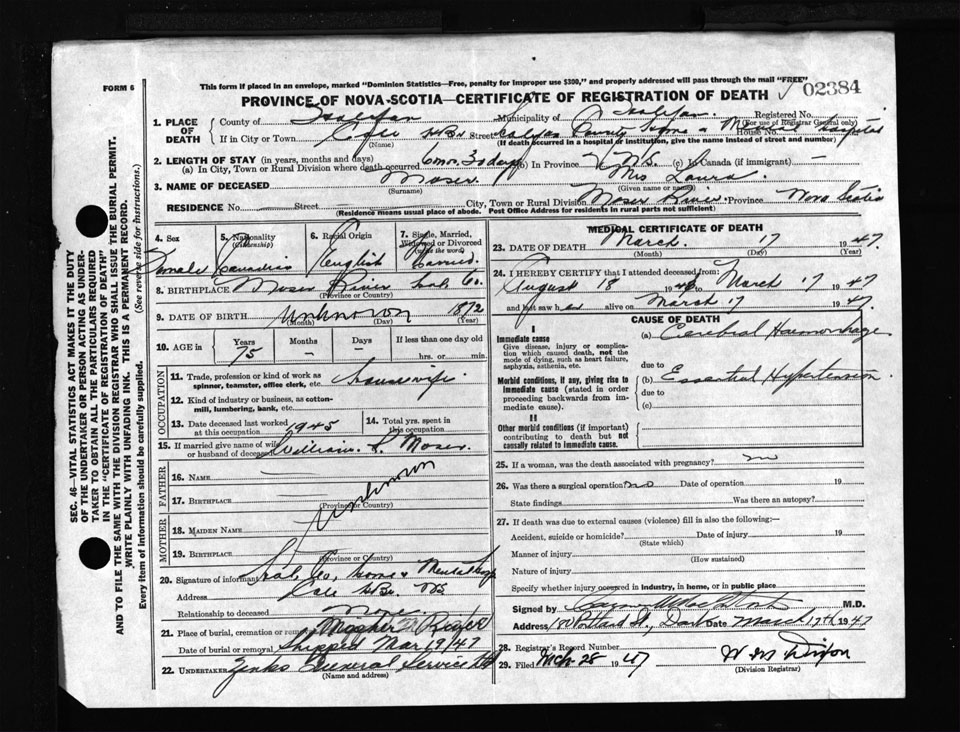 FORM 6
This form if placed in an envelope, marked "Dominion Statistics—Free, penalty for improper use $300," and properly addressed will pass through the mail "FREE"
PROVINCE OF NOVA SCOTIA—CERTIFICATE OF REGISTRATION OF DEATH
02384
SEC. 46—VITAL STATISTICS ACT MAKES IT THE DUTY
OF THE UNDERTAKER OR PERSON ACTING AS UNDER-
TAKER TO OBTAIN ALL THE PARTICULARS REQUIRED
IN THE "CERTIFICATE OF REGISTRATION OF DEATH"
AND TO FILE THE SAME WITH THE DIVISION REGISTRAR WHO SHALL ISSUE THE BURIAL PERMIT.
WRITE PLAINLY WITH UNFADING INK. THIS IS A PERMANENT RECORD.
(See reverse side for instructions.)
Every item of information should be carefully supplied.
1. PLACE OF DEATH
County of Halifax Municipality of Halifax Registered No.
(For use of Registrar General only)
If in City or Town Cole Hbr Street Halifax County Home & Mental Hospital House No.
(Name) (If death occurred in a hospital or institution, give the name instead of street and number)
2. LENGTH OF STAY (in years, months and days)
(a) In City, Town or Rural Division where death occurred 6 mos. 30 days (b) In Province (c) In Canada (if immigrant) —
3. NAME OF DECEASED Moser Mrs Laura
(Surname) (Given name or names)
RESIDENCE No. — Street — City, Town or Rural Division Moser River Province Nova Scotia
(Residence means usual place of abode. Post Office Address for residents in rural parts not sufficient)
4. Sex Female
5. Nationality (Citizenship) Canadian
6. Racial Origin English
7. Single, Married, Widowed or Divorced (Write the word) Married
8. BIRTHPLACE Moser River Hal. Co.
(Province or Country)
9. DATE OF BIRTH Unknown 1872
(Month) (Day) (Year)
10. AGE in Years 75 Months — Days — If less than one day old
hrs. or min.
OCCUPATION
11. Trade, profession or kind of work as spinner, teamster, office clerk, etc. housewife
12. Kind of industry or business, as cotton-mill, lumbering, bank, etc.
13. Date deceased last worked at this occupation 1945
14. Total yrs. spent in this occupation
15. If married give name of wife or husband of deceased William S. Moser
FATHER
16. Name
17. Birthplace
(Province or Country)
Unknown
MOTHER
18. Maiden Name
19. Birthplace
(Province or Country)
20. Signature of informant Hal. Co. Home & Mental Hosp
Address Cole Hbr. NS
Relationship to deceased None
21. Place of burial, cremation or removal Mosher River
Date of burial or removal Shipped Mar 19/47
22. UNDERTAKER Zinks General Service Ltd
(Name and address)
MEDICAL CERTIFICATE OF DEATH
23. DATE OF DEATH March 17 1947
(Month) (Day) (Year)
24. I HEREBY CERTIFY that I attended deceased from:
August 18 1946 to March 17 1947
and last saw her alive on March 17 1947.
CAUSE OF DEATH
I
Immediate cause (a) Cerebral Haemorrhage
Give disease, injury or complication which caused death, not the mode of dying, such as heart failure, asphyxia, asthenia, etc.
due to
Morbid conditions, if any, giving rise to immediate cause (stated in order proceeding backwards from immediate cause). (b) Essential Hypertension
due to
(c)
II
Other morbid conditions (if important) contributing to death but not causally related to immediate cause.
25. If a woman, was the death associated with pregnancy? no
26. Was there a surgical operation? no Date of operation 19
State findings Was there an autopsy?
27. If death was due to external causes (violence) fill in also the following—
Accident, suicide or homicide? Date of injury 19
(State which)
Manner of injury
(How sustained)
Nature of injury
Specify whether injury occurred in industry, in home, or in public place
Signed by M.D.
Address 100 Portland St., Dart Date March 17th 1947
28. Registrar's Record Number
29. Filed Mch 28 1947 W M Dixon
(Division Registrar)